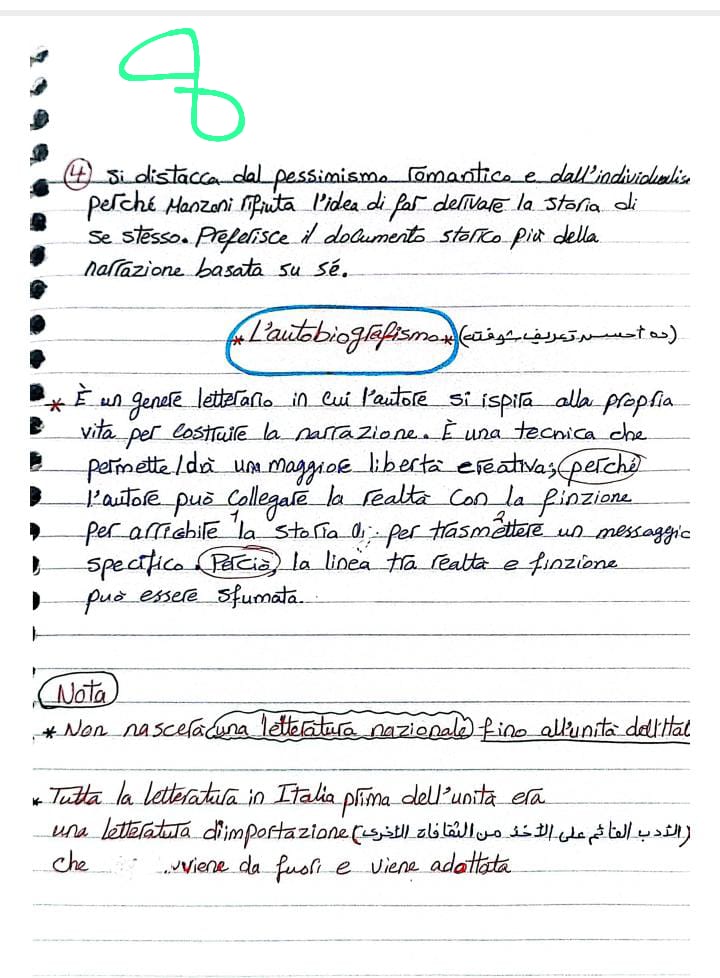 8
④ si distacca dal pessimismo romantico e dall'individualis
perché Manzoni rifiuta l'idea di far derivare la storia di
se stesso. Preferisce il documento storico più della
narrazione basata su sé.
* L'autobiografismo * (ده احسن تعريف شوفته)
* È un genere letterario in cui l'autore si ispira alla propria
vita per costruire la narrazione. È una tecnica che
permette/dà una maggiore libertà creativa; perché
l'autore può collegare la realtà con la finzione
per arrichire 1 la storia o per 2 trasmettere un messaggio
specifico. Perciò, la linea tra realtà e finzione
può essere sfumata.
Nota
* Non nascerà una letteratura nazionale fino all'unità dell'Ital
* Tutta la letteratura in Italia prima dell'unità era
una letteratura d'importazione (الأدب القائم على الأخذ من الثقافات الأخرى)
che viene da fuori e viene adottata